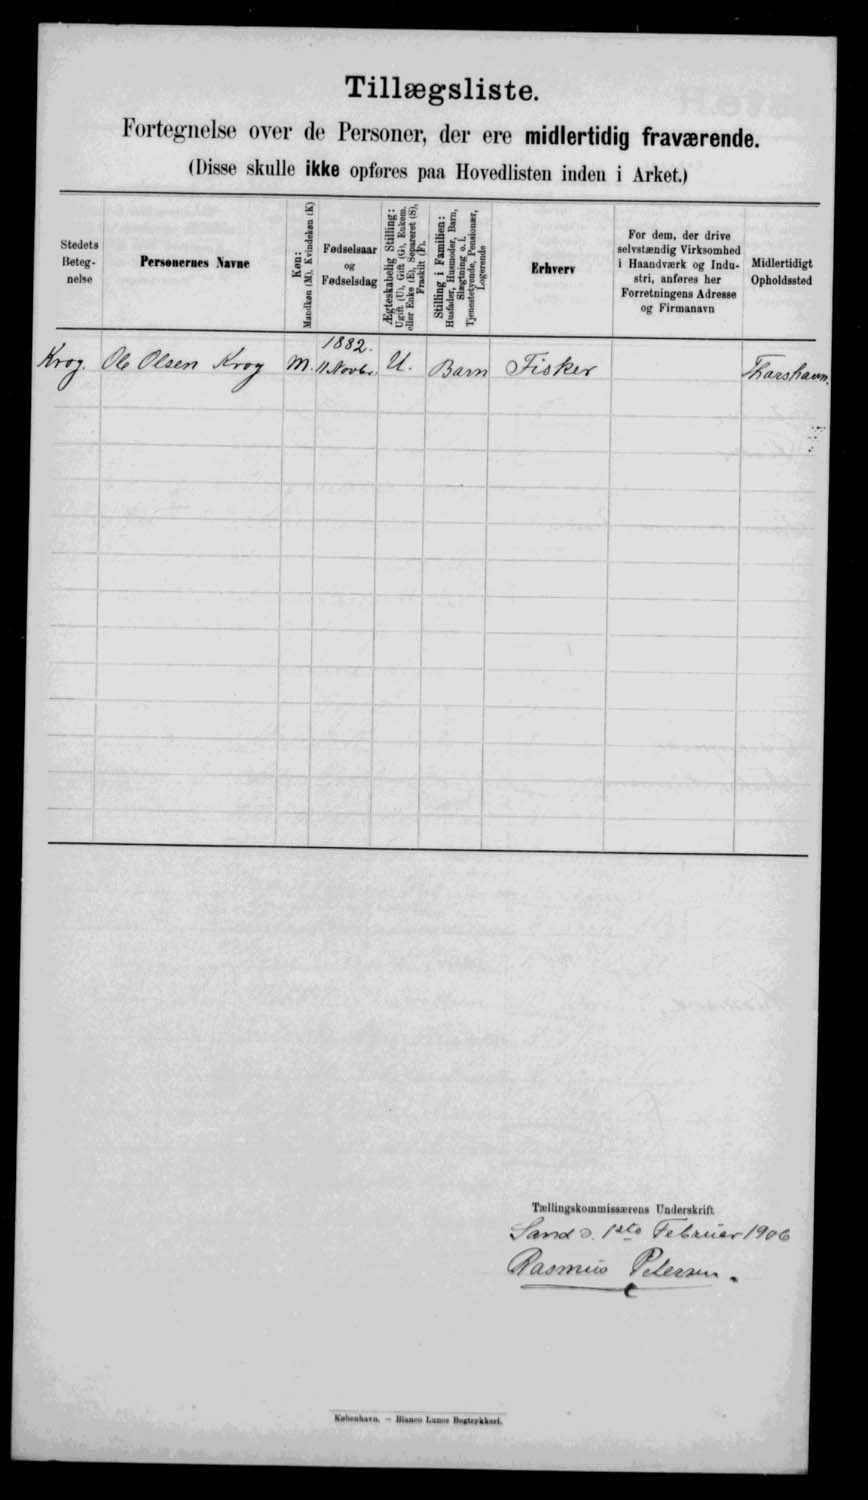 Tillægsliste.
Fortegnelse over de Personer, der ere midlertidig fraværende.
(Disse skulle ikke opføres paa Hovedlisten inden i Arket.)
Stedets
Beteg-
nelse
Personernes Navne
Køn:
Mandkøn (M), Kvindekøn (K)
Fødselsaar
og
Fødselsdag
Ægteskabelig Stilling:
Ugift (U), Gift (G), Enkem.
eller Enke (E), Separeret (S),
Fraskilt (F).
Stilling i Familien:
Husfader, Husmoder, Barn,
Slægtning o. l.
Tjenestetyende, Pensionær,
Logerende
Erhverv
For dem, der drive
selvstændig Virksomhed
i Haandværk og Indu-
stri, anføres her
Forretningens Adresse
og Firmanavn
Midlertidigt
Opholdssted
Krog. Ole Olsen Krog M. 1882. 11 Novbr. U. Barn Fisker Thorshavn.
Tællingskommissærens Underskrift
Sand d. 1ste Februar 1906
Rasmus Petersen.
København. – Bianco Lunos Bogtrykkeri.